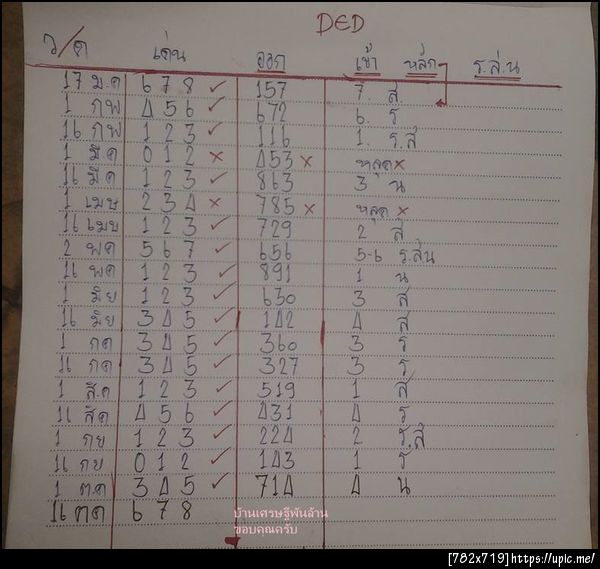 DED
ว/ด เด่น ออก เข้า หลัก ร.ส่.น
17 ม.ค 6 7 8 ✓ 157 7. ส่
1 กพ 4 5 6 ✓ 672 6. ร
16 กพ 1 2 3 ✓ 116 1. ร.ส่
1 มีค 0 1 2 × 453 × หลุด ×
16 มีค 1 2 3 ✓ 863 3 น
1 เมษ 2 3 4 × 785 × หลุด ×
16 เมษ 1 2 3 ✓ 729 2 ส่
2 พค 5 6 7 ✓ 656 5-6 ร.ส่น
16 พค 1 2 3 ✓ 891 1 น
1 มิย 1 2 3 ✓ 630 3 ส่
16 มิย 3 4 5 ✓ 142 4 ส่
1 กด 3 4 5 ✓ 360 3 ร
16 กด 3 4 5 ✓ 327 3 ร
1 ส.ค 1 2 3 ✓ 519 1 ส่
16 สค 4 5 6 ✓ 431 4 ร
1 กย 1 2 3 ✓ 224 2 ร.ส่
16 กย 0 1 2 ✓ 143 1 ร
1 ต.ค 3 4 5 ✓ 714 4 น
16 ตค 6 7 8
บ้านเศรษฐีพันล้าน
ขอบคุณครับ
[782x719]https://upic.me/